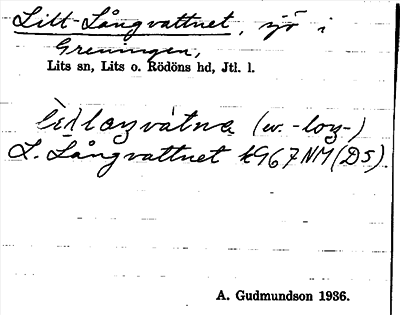 Litt-Långvattnet, sjö i
Greningen,
Lits sn, Lits o. Rödöns hd, Jtl. l.
(ev. -loŋ-)
L. Långvattnet k967NM(DS).
A. Gudmundson 1936.